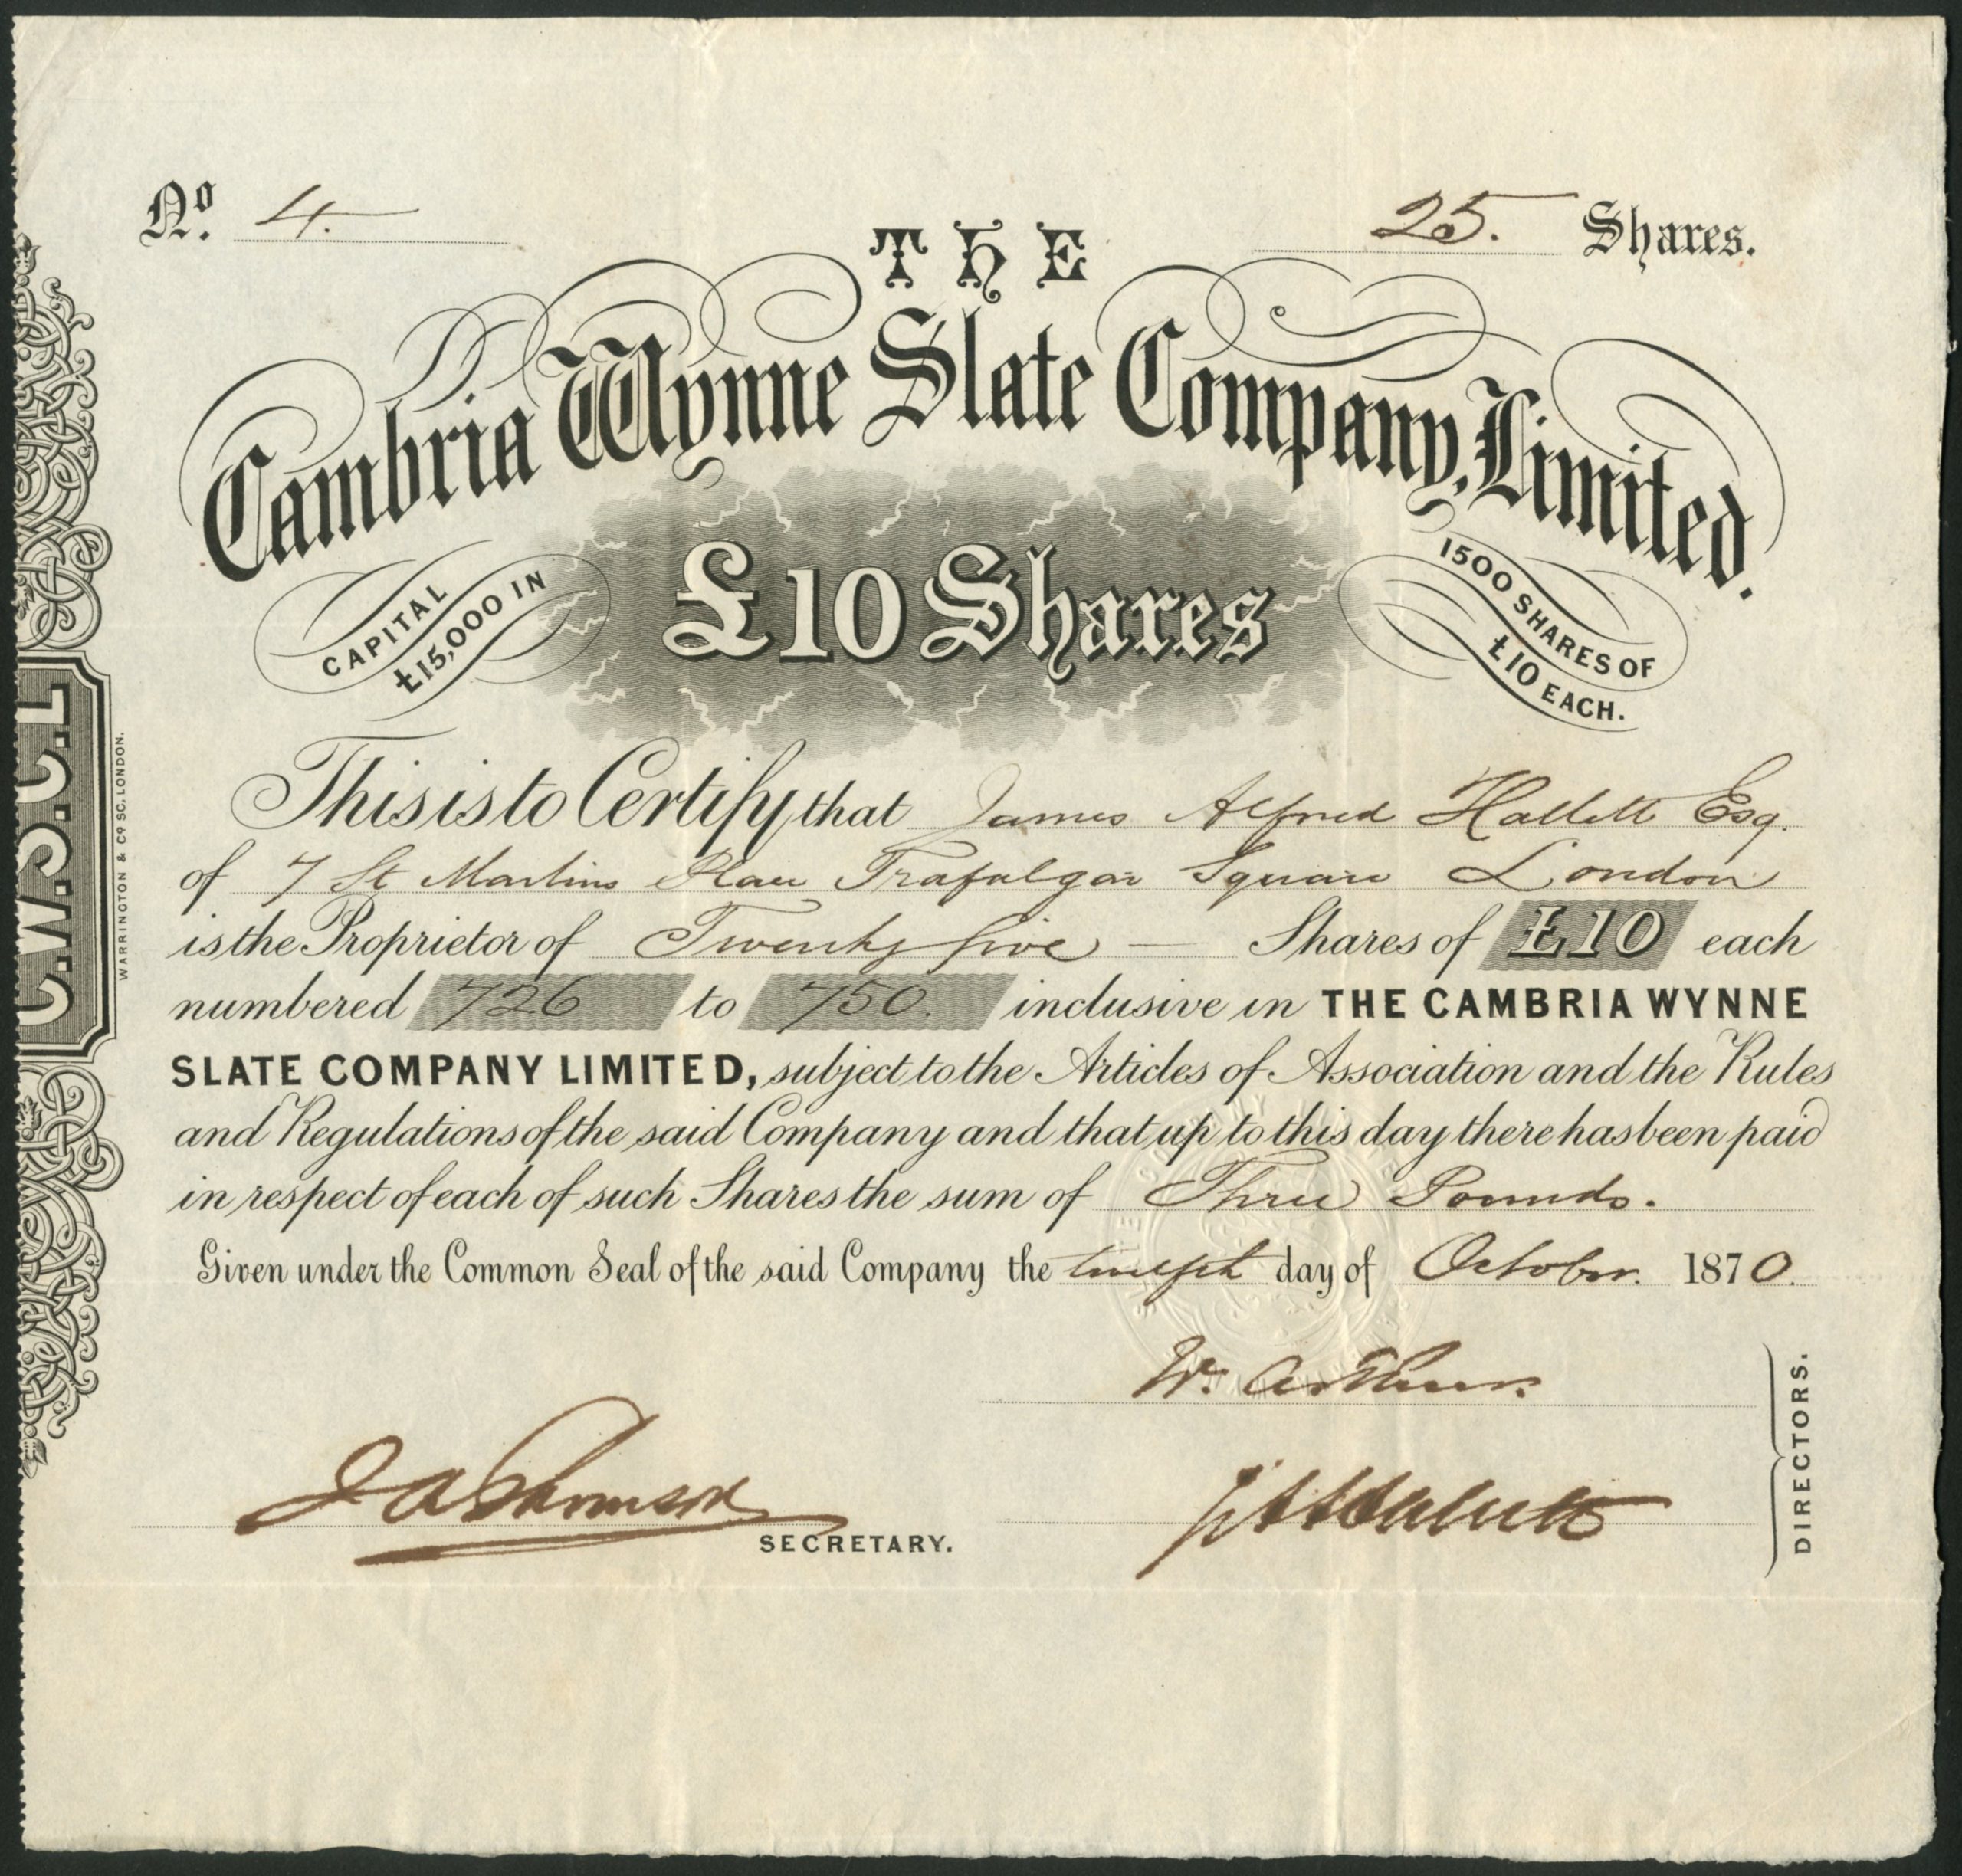 No. 4.
25. Shares.
THE
Cambria Wynne Slate Company, Limited.
CAPITAL
£15,000 IN
£10 Shares
1500 SHARES OF
£10 EACH.
This is to Certify that James Alfred Hallett Esq.
of 7 St Martins Place Trafalgar Square London
is the Proprietor of Twenty five — Shares of £10 each
numbered 726 to 750. inclusive in THE CAMBRIA WYNNE
SLATE COMPANY LIMITED, subject to the Articles of Association and the Rules
and Regulations of the said Company and that up to this day there has been paid
in respect of each of such Shares the sum of Three Pounds.
Given under the Common Seal of the said Company the twelfth day of October. 1870.
W. Arthur.
J A Hallett
DIRECTORS.
SECRETARY.
C.W.S.C.L
WARRINGTON & Co. SC. LONDON.